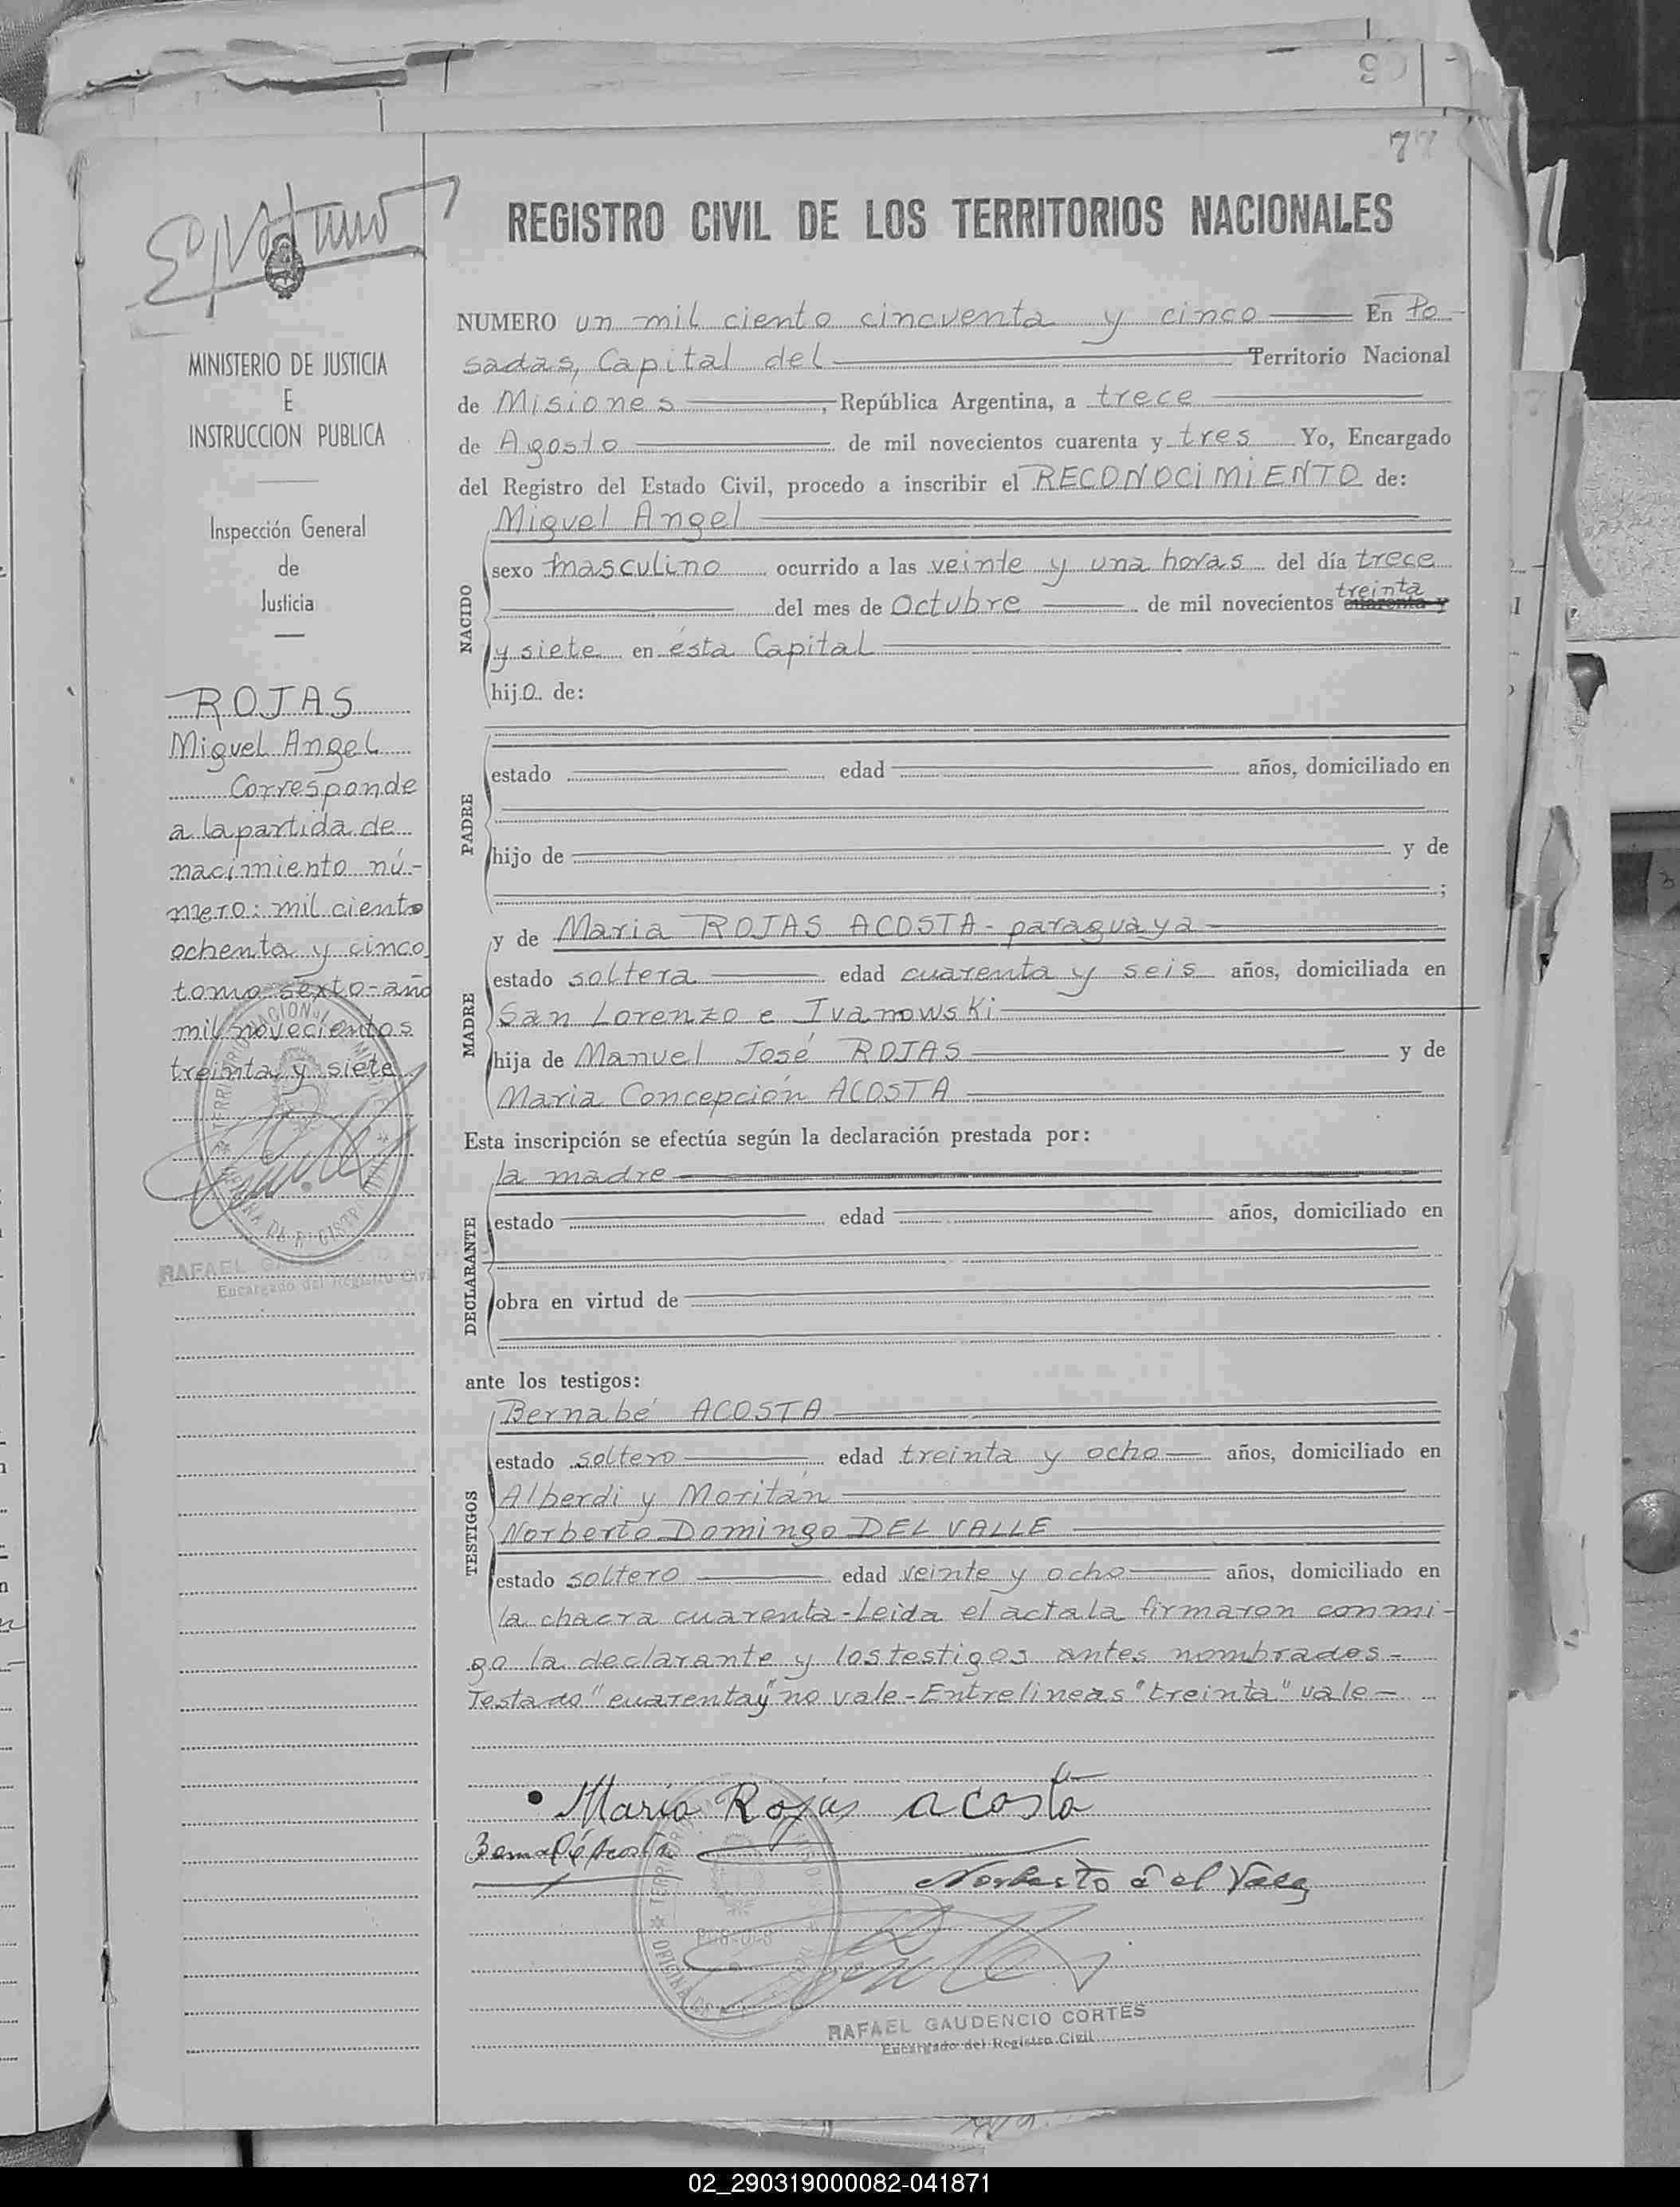 77
REGISTRO CIVIL DE LOS TERRITORIOS NACIONALES
MINISTERIO DE JUSTICIA
E
INSTRUCCION PUBLICA
Inspección General
de
Justicia
ROJAS
Miguel Angel
Corresponde
a la partida de
nacimiento nú-
mero: mil ciento
ochenta y cinco,
tomo sexto-año
mil novecientos
treinta y siete
RAFAEL GAUDENCIO CORTES
Encargado del Registro Civil
NUMERO un mil ciento cincuenta y cinco En Po-
sadas, Capital del Territorio Nacional
de Misiones, República Argentina, a trece
de Agosto de mil novecientos cuarenta y tres Yo, Encargado
del Registro del Estado Civil, procedo a inscribir el RECONOCIMIENTO de:
NACIDO
Miguel Angel
sexo masculino ocurrido a las veinte y una horas del día trece
del mes de Octubre de mil novecientos cuarenta y treinta
y siete en ésta Capital
hijo de:
PADRE
estado edad años, domiciliado en
hijo de y de
;
MADRE
y de Maria ROJAS ACOSTA - paraguaya
estado soltera edad cuarenta y seis años, domiciliada en
San Lorenzo e Ivanowski
hija de Manuel José ROJAS y de
Maria Concepción ACOSTA
Esta inscripción se efectúa según la declaración prestada por:
DECLARANTE
la madre
estado edad años, domiciliado en
obra en virtud de
ante los testigos:
TESTIGOS
Bernabé ACOSTA
estado soltero edad treinta y ocho años, domiciliado en
Alberdi y Moritán
Norberto Domingo DEL VALLE
estado soltero edad veinte y ocho años, domiciliado en
la chacra cuarenta-Leida el acta la firmaron conmi-
go la declarante y los testigos antes nombrados-
Testado "cuarenta y" no vale-Entrelineas "treinta" vale-
Maria Rojas acosta
Bernabé Acosta
Norberto d el Valle
RAFAEL GAUDENCIO CORTES
Encargado del Registro Civil
02_290319000082-041871